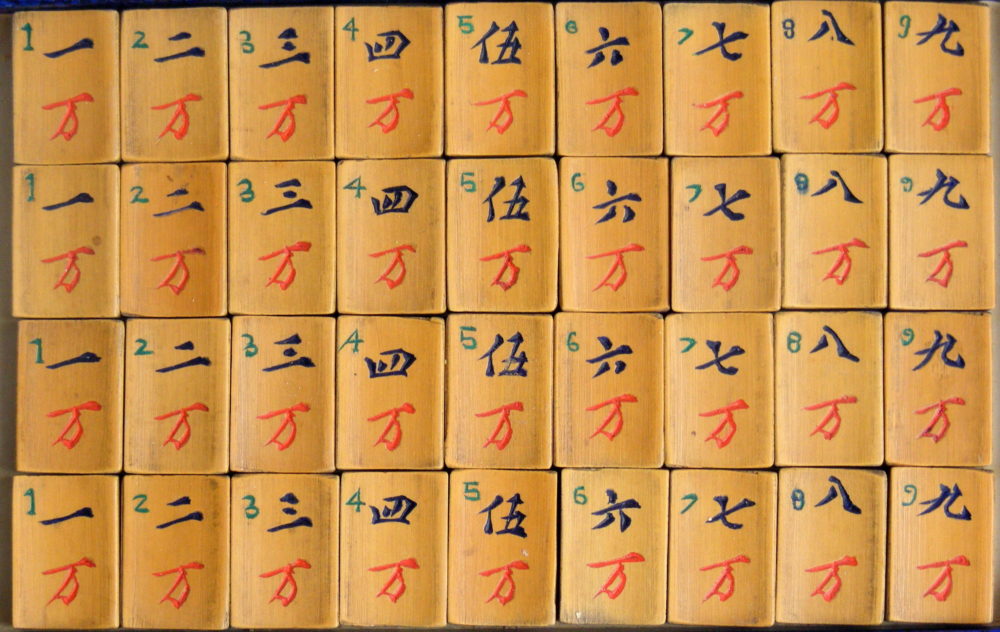 1 一 2 二 3 三 4 四 5 伍 6 六 7 七 8 八 9 九
万 万 万 万 万 万 万 万 万
1 一 2 二 3 三 4 四 5 伍 6 六 7 七 8 八 9 九
万 万 万 万 万 万 万 万 万
1 一 2 二 3 三 4 四 5 伍 6 六 7 七 8 八 9 九
万 万 万 万 万 万 万 万 万
1 一 2 二 3 三 4 四 5 伍 6 六 7 七 8 八 9 九
万 万 万 万 万 万 万 万 万